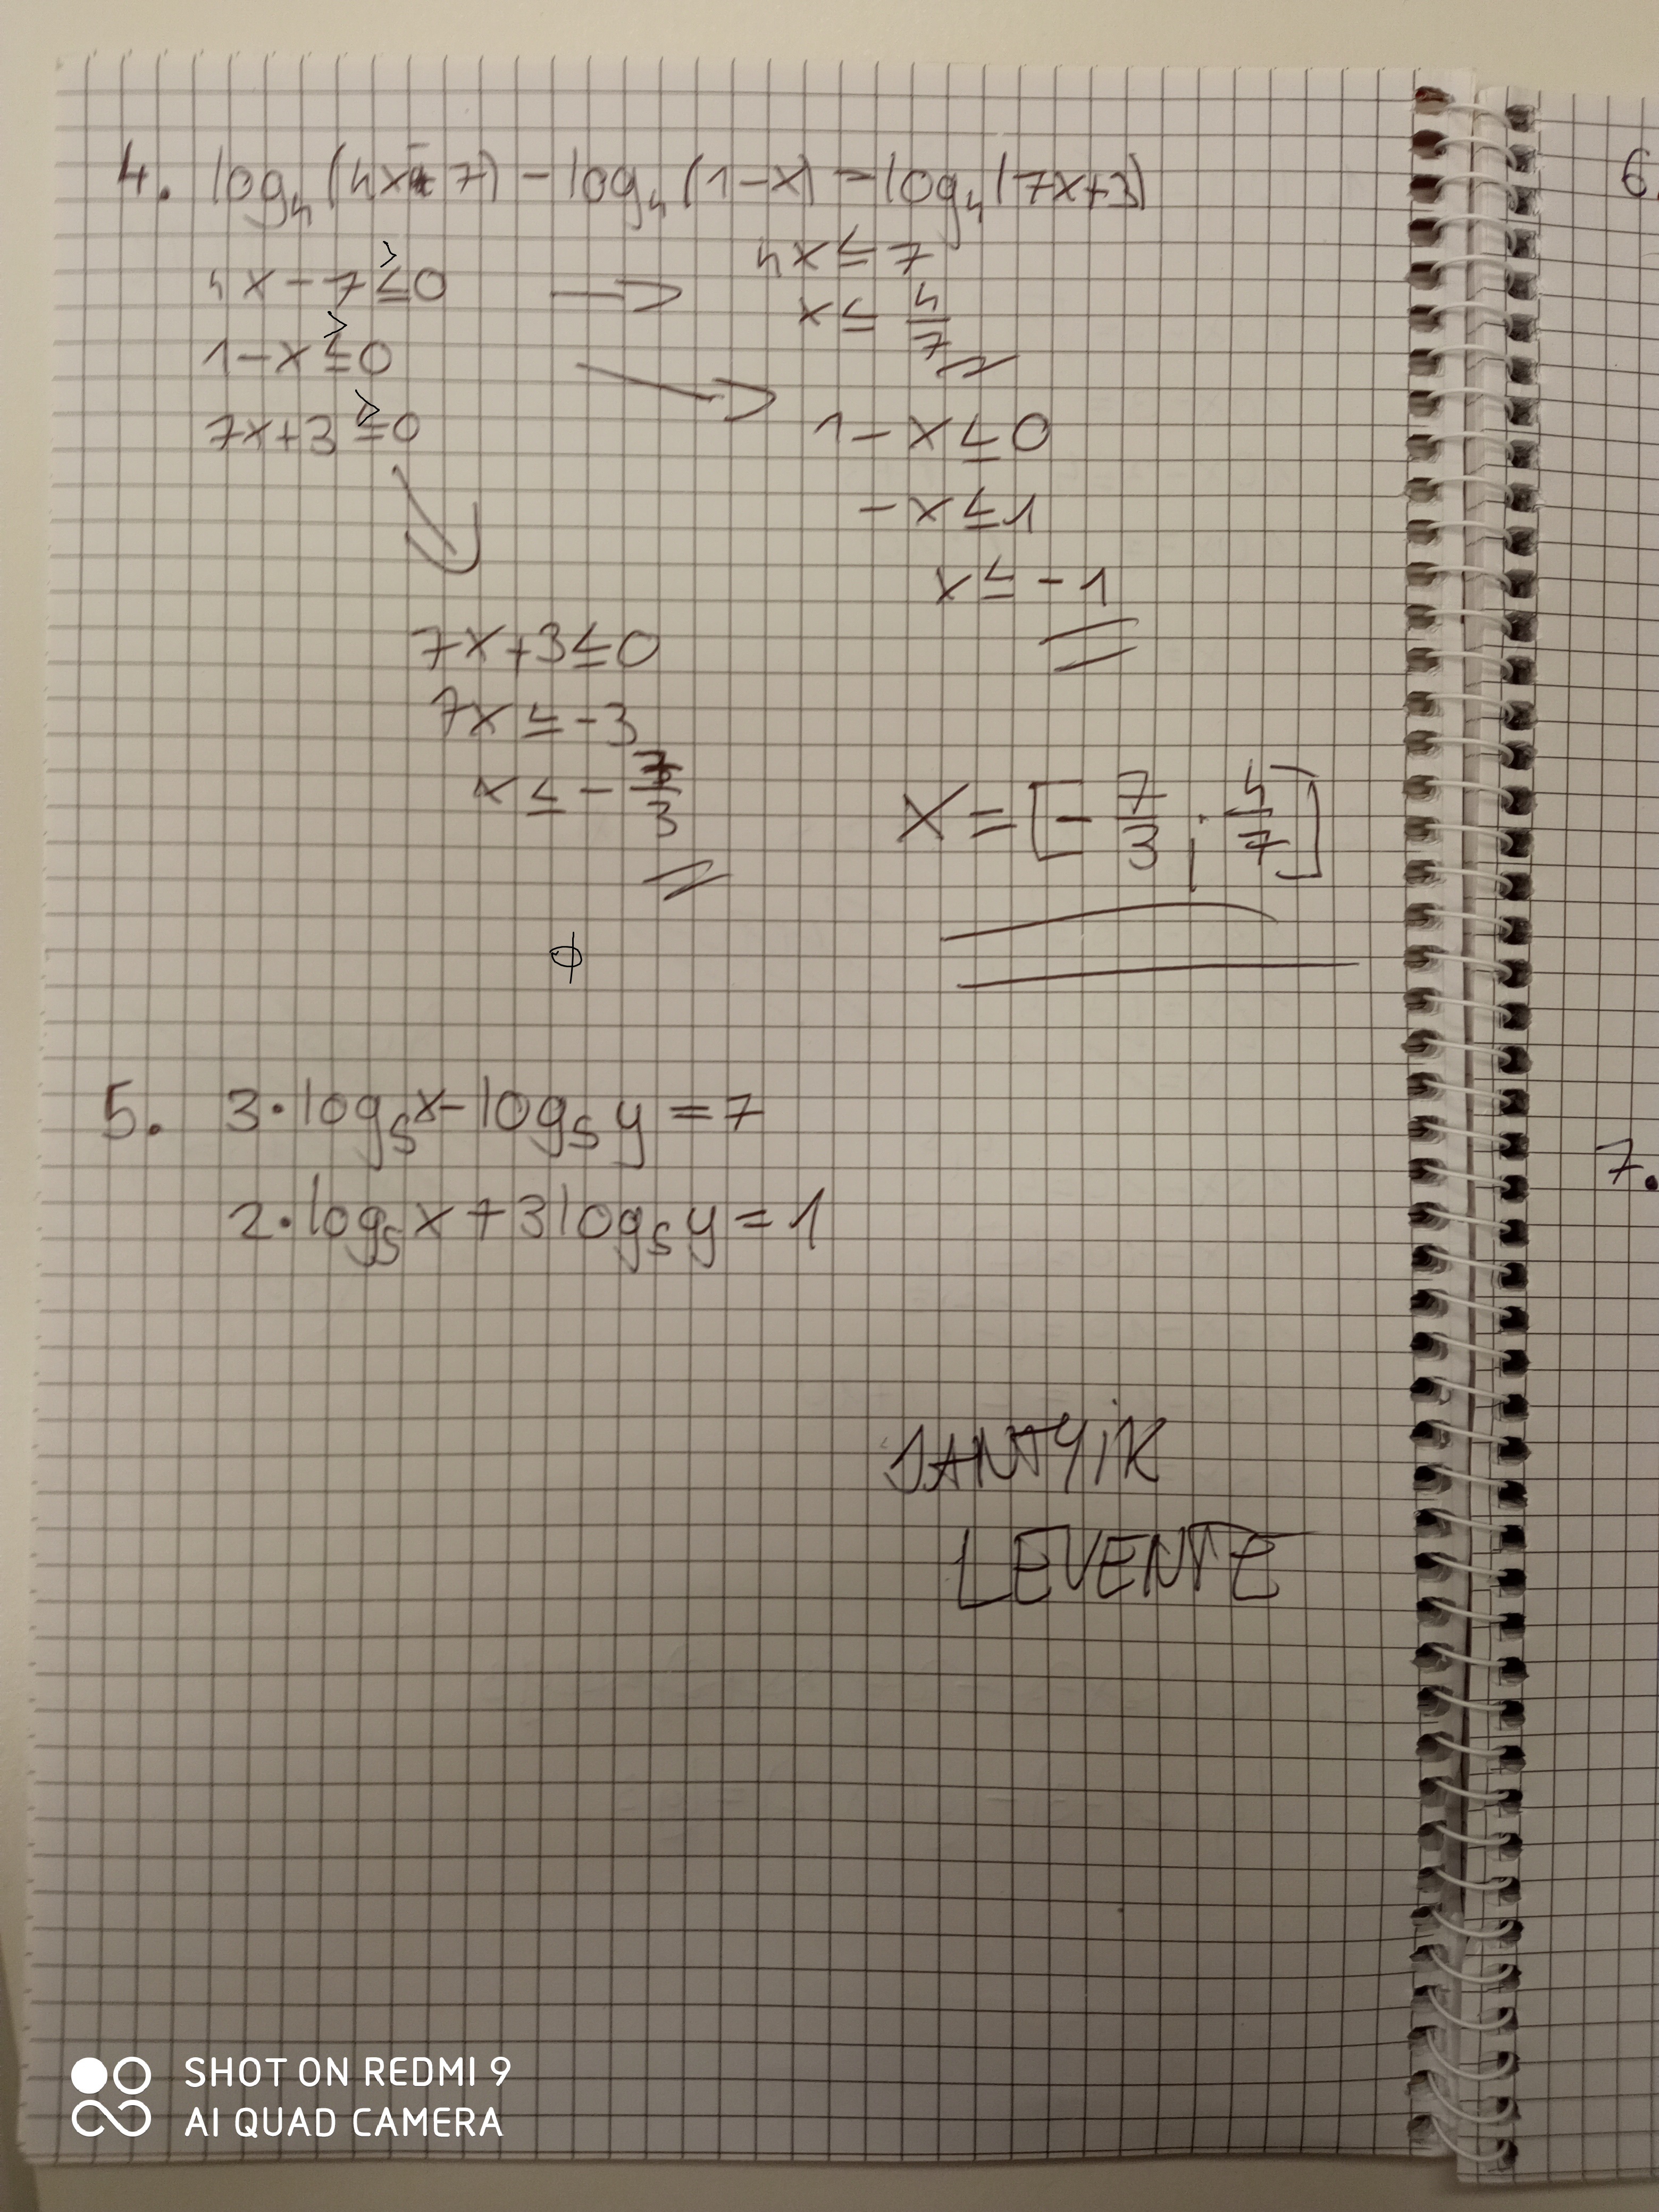 4. log₄(4x-7) - log₄(1-x) = log₄(7x+3)
4x-7≤0 ⇒ 4x≤7
>
x≤4/7
1-x≤0 ⇒ 1-x≤0
>
7x+3≤0
>
-x≤1
x≤-1
7x+3≤0
7x≤-3
x≤-7/3
x=[-7/3;4/7]
ϕ
5. 3·log₅x-log₅y=7
2·log₅x+3log₅y=1
JANTYIK
LEVENTE
6.
7.
SHOT ON REDMI 9
AI QUAD CAMERA